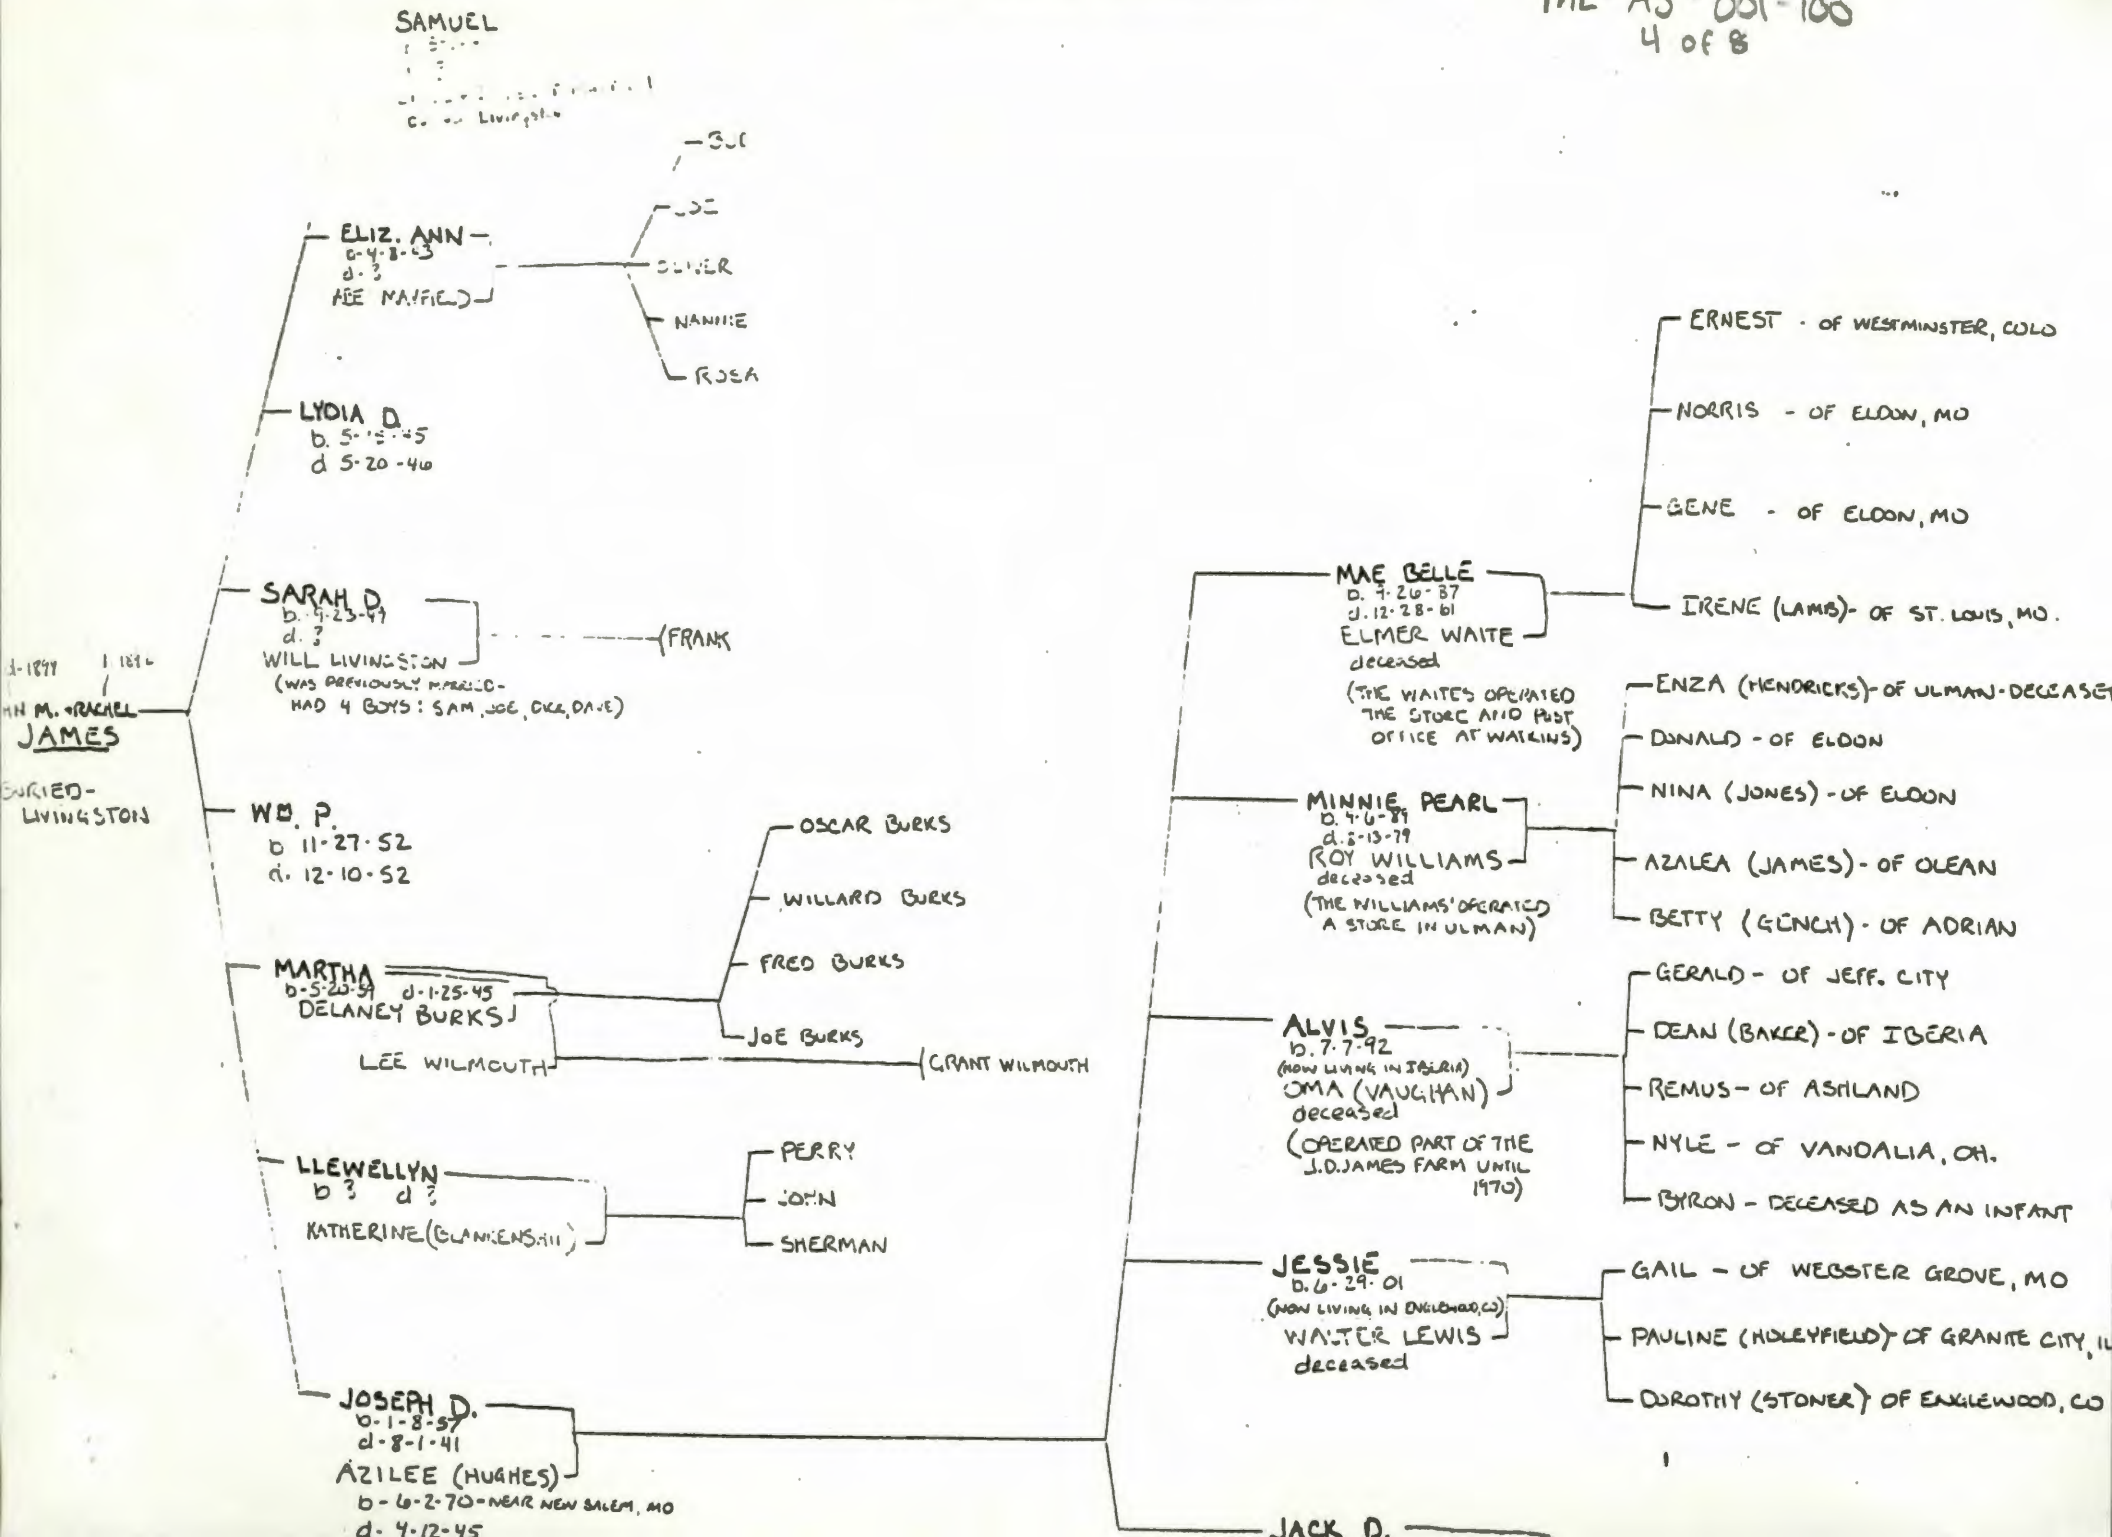 SAMUEL
001-100
4 OF 8
Livingston
ELIZ. ANN
d-?
JOE
OLIVER
NANNIE
ROSA
LYDIA D.
d 5-20-46
SARAH D.
d. ?
WILL LIVINGSTON
(WAS PREVIOUSLY MARRIED-
HAD 4 BOYS: SAM, JOE, DAVE)
FRANK
M. + RACHEL
JAMES
BURIED-
LIVINGSTON
WM. P.
b 11-27-52
d. 12-10-52
MARTHA
b-5-20-59 d-1-25-45
DELANEY BURKS
LEE WILMOUTH
OSCAR BURKS
WILLARD BURKS
FRED BURKS
JOE BURKS
GRANT WILMOUTH
LLEWELLYN
b ? d ?
KATHERINE (BLANKENSHIP)
PERRY
JOHN
SHERMAN
JOSEPH D.
b-1-8-57
d-8-1-41
AZILEE (HUGHES)
b-6-2-70-NEAR NEW SALEM, MO
d-4-12-45
MAE BELLE
d. 12-28-61
ELMER WAITE
deceased
(THE WAITES OPERATED
THE STORE AND POST
OFFICE AT WATKINS)
ERNEST - OF WESTMINSTER, COLO
NORRIS - OF ELDON, MO
GENE - OF ELDON, MO
IRENE (LAMB)- OF ST. LOUIS, MO.
MINNIE PEARL
ROY WILLIAMS
deceased
(THE WILLIAMS' OPERATED
A STORE IN ULMAN)
ENZA (HENDRICKS)-OF ULMAN-DECEASED
DONALD - OF ELDON
NINA (JONES) - OF ELDON
AZALEA (JAMES) - OF OLEAN
BETTY (GENCH) - OF ADRIAN
ALVIS
b. 7-7-92
(NOW LIVING IN IBERIA)
OMA (VAUGHAN)
deceased
(OPERATED PART OF THE
J.D. JAMES FARM UNTIL
1970)
GERALD - OF JEFF. CITY
DEAN (BAKER) - OF IBERIA
REMUS - OF ASHLAND
NYLE - OF VANDALIA, OH.
BYRON - DECEASED AS AN INFANT
JESSIE
b. 6-29-01
(NOW LIVING IN ENGLEWOOD, CO)
WALTER LEWIS
deceased
GAIL - OF WEBSTER GROVE, MO
PAULINE (HOLEYFIELD)-OF GRANITE CITY, IL
DOROTHY (STONER)- OF ENGLEWOOD, CO
JACK D.